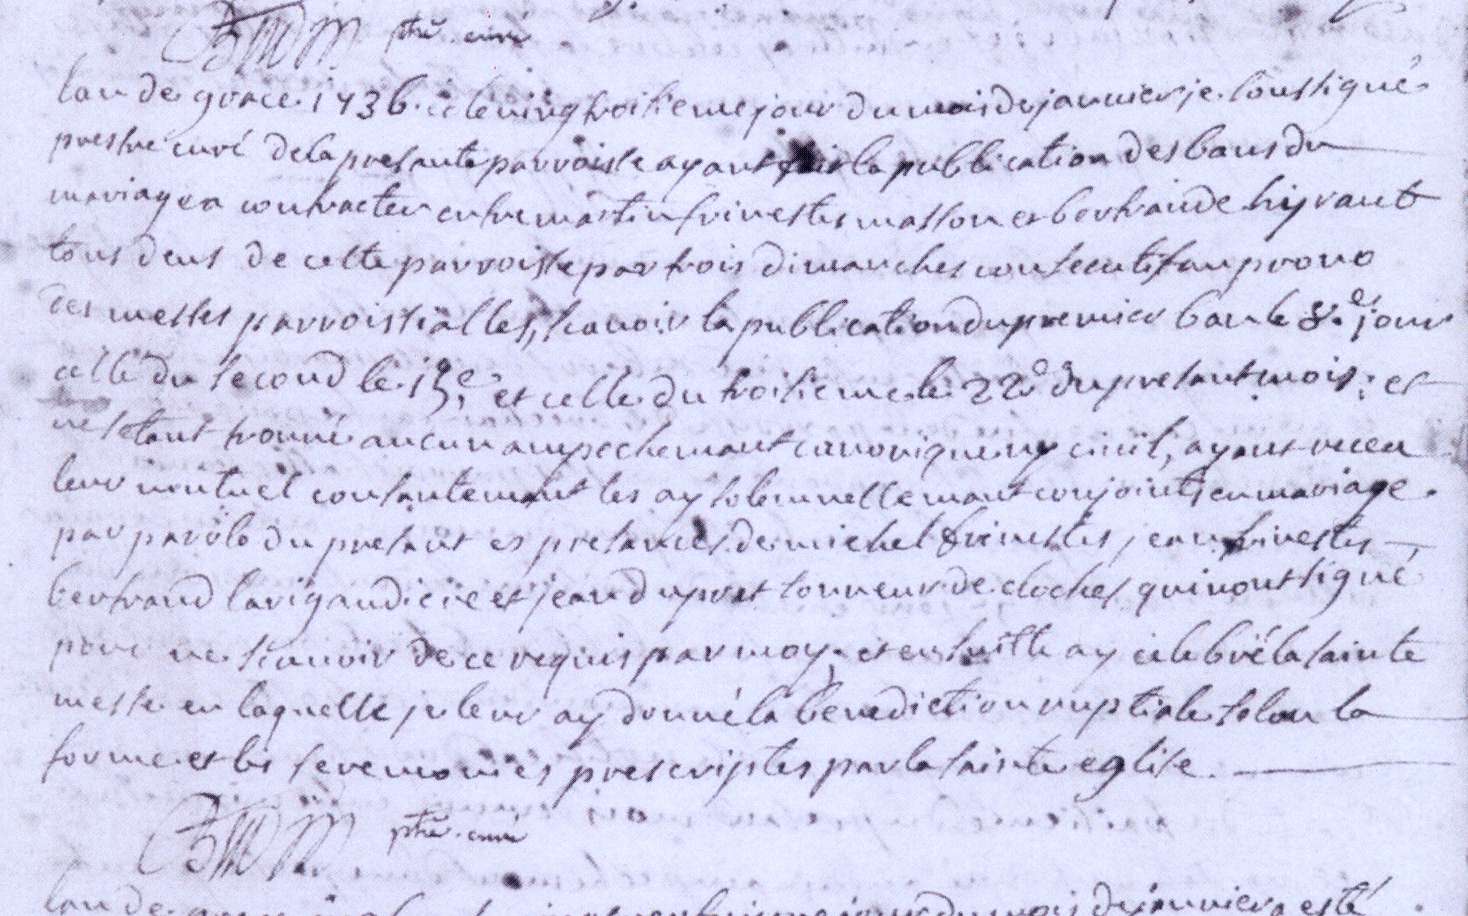 ptre curé
lan de grace 1736 et le vingtroisieme jour du mois de janvier je soussigné
prestre curé de la presante parroisse ayant fait la publication des bans du
mariage a contracter entre martin frinestes masson et bertrande hyraut
tous deus de cette parroisse par trois dimanches consecutifs au prono
des messes parroissialles, scavoir la publication du premier ban le 8e jour
celle du second le 15e, et celle du troisieme le 22e du presant mois; et
ne setant trouvé aucun ampechemant canonique ny civil, ayant receu
leur mutuel consantemant les ay solemnellemant conjoints en mariage
par parole du presant es presances de michel frinestes, jean frinestes,
bertrand larigaudiere et jean duprat sonneur de cloches qui nont signé
pour ne scavoir de ce requis par moy, et ensuitte ay celebré la sainte
messe en laquelle je leur ay donné la benediction nuptiale selon la
forme et les seremonies prescriptes par la sainte eglise.
ptre curé
lan de jour du mois de janvier a esté